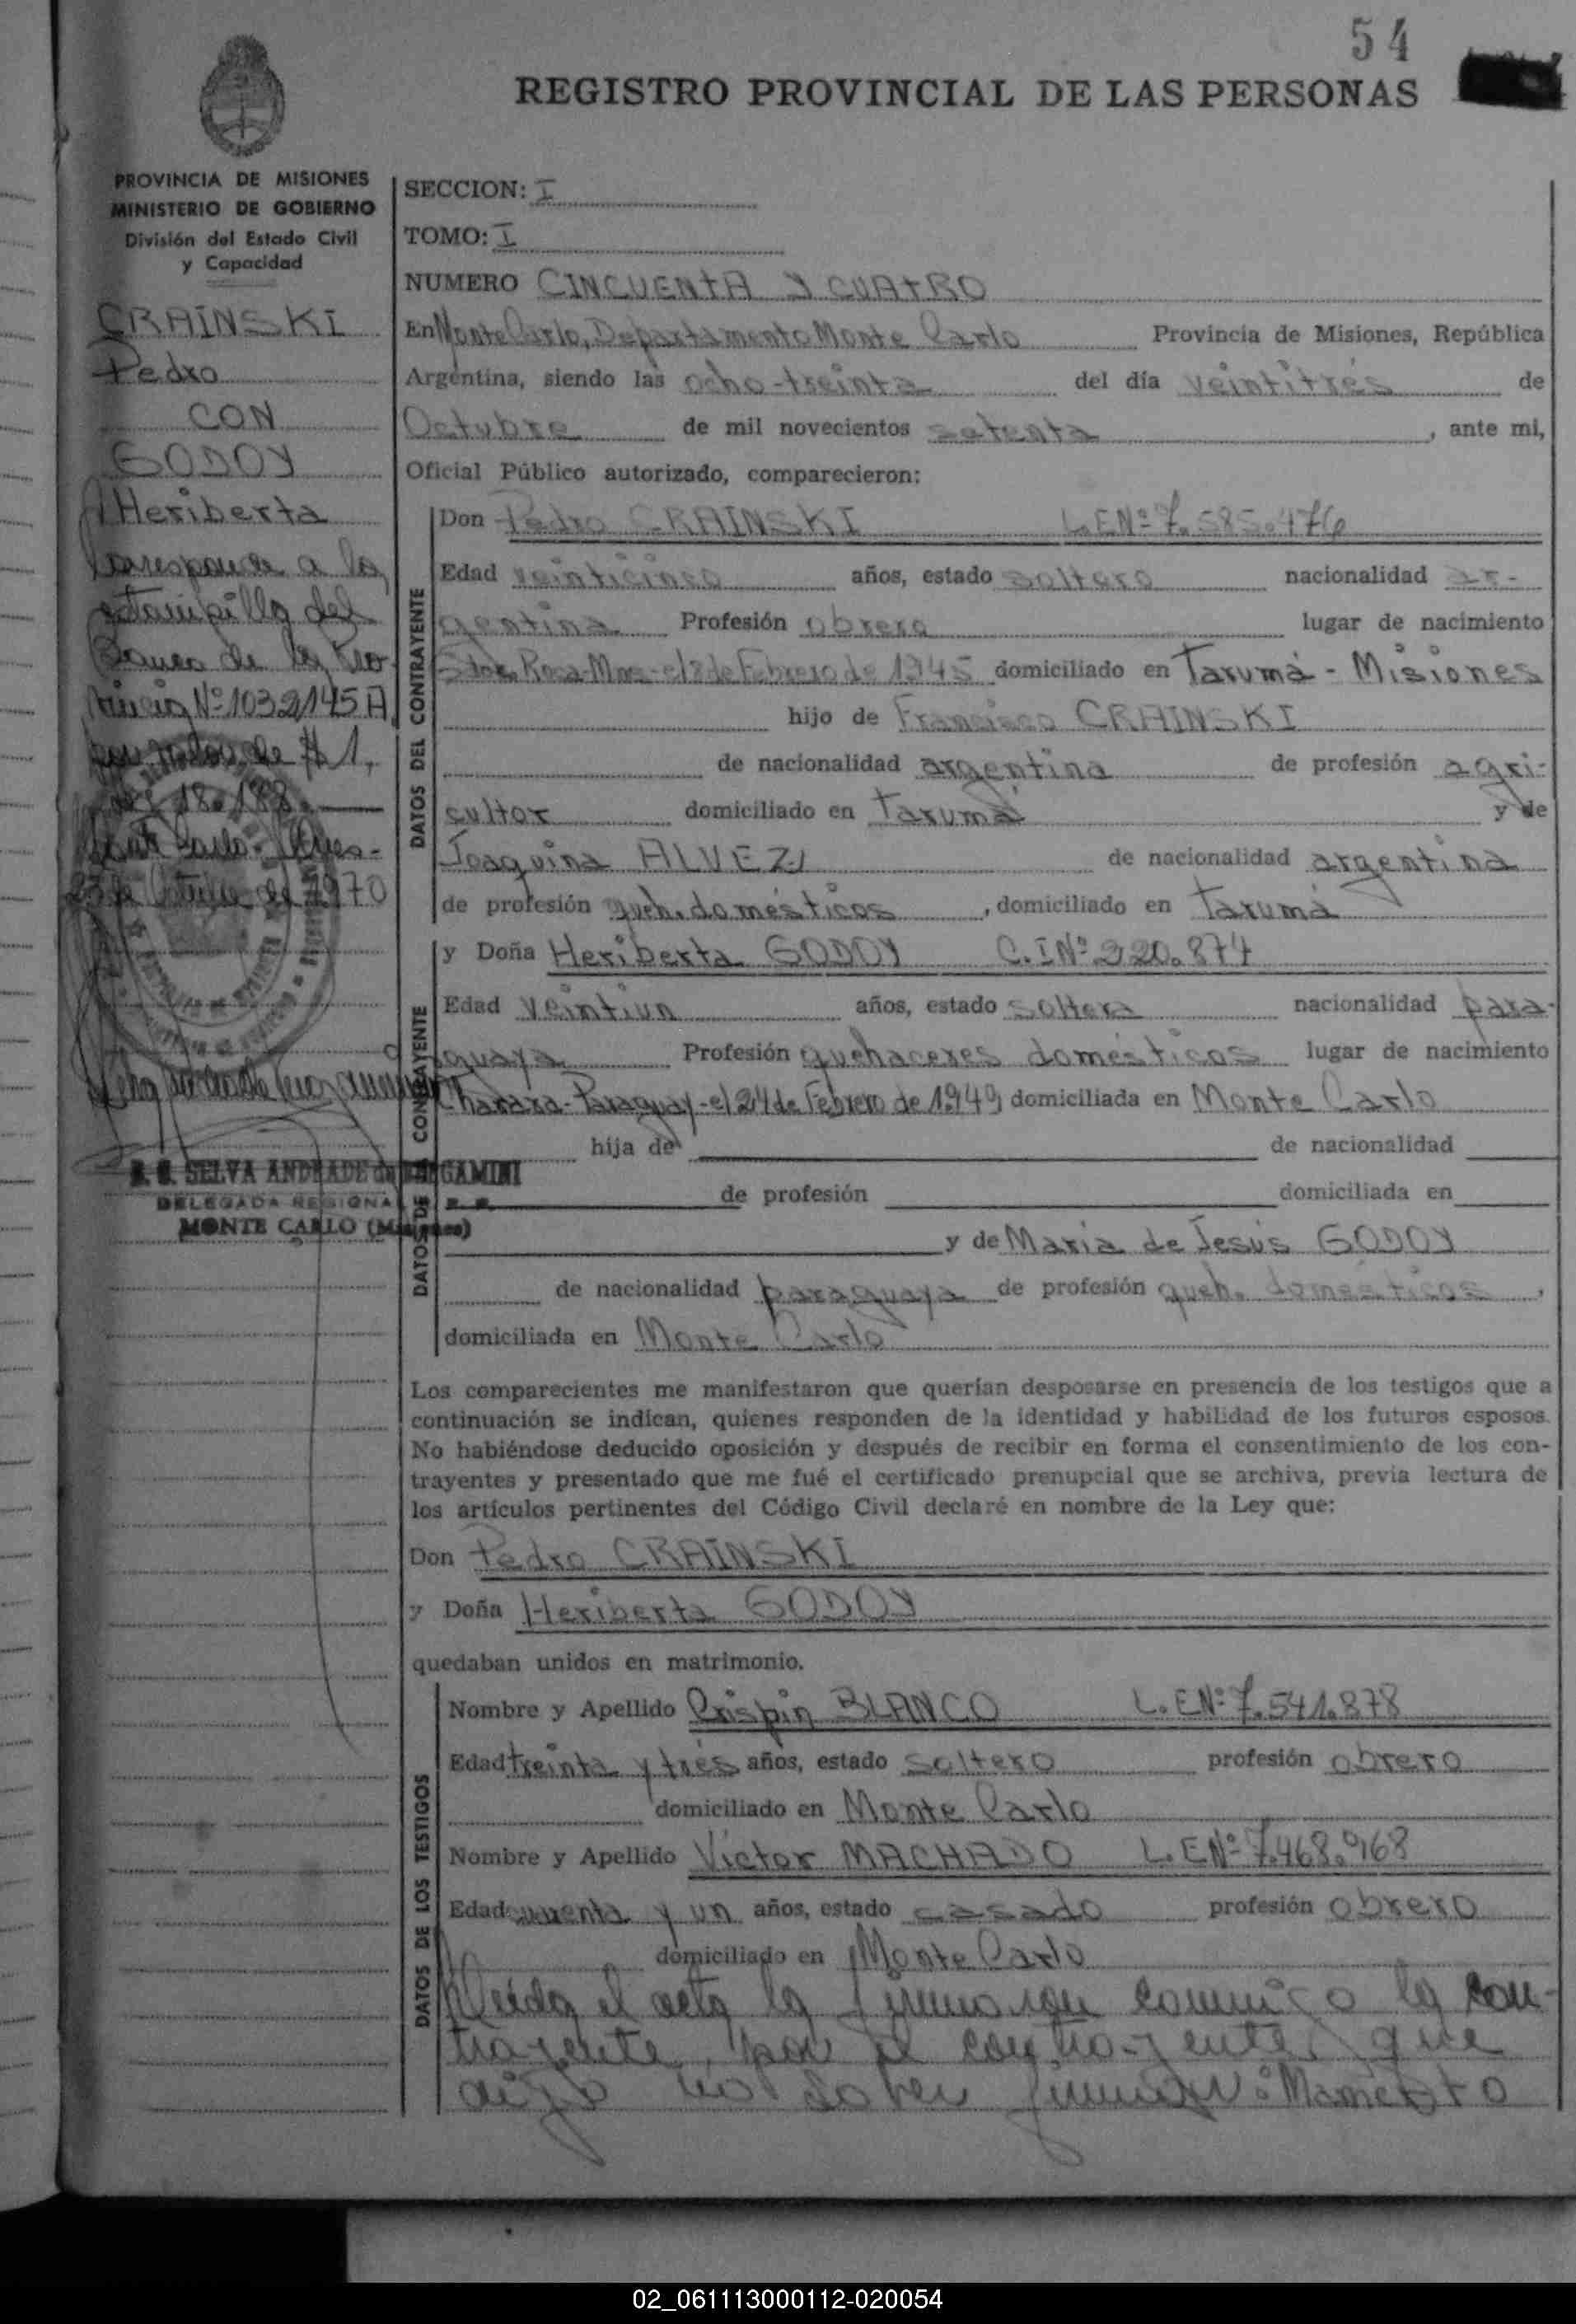 54
REGISTRO PROVINCIAL DE LAS PERSONAS
PROVINCIA DE MISIONES
MINISTERIO DE GOBIERNO
División del Estado Civil
y Capacidad
CRAINSKI
Pedro
CON
GODOY
Heriberta
Corresponde a la
estampilla del
Banco de la Pro-
vincia Nº 1032145 A
por valor de $ 1,
18.188.
23 de Octubre de 1970
SELVA ANDRADE de BERGAMINI
DELEGADA REGIONAL
MONTE CARLO (Misiones)
SECCION: I
TOMO: I
NUMERO CINCUENTA Y CUATRO
En Monte Carlo, Departamento Monte Carlo Provincia de Misiones, República
Argentina, siendo las ocho-treinta del día veintitrés de
Octubre de mil novecientos setenta, ante mi,
Oficial Público autorizado, comparecieron:
DATOS DEL CONTRAYENTE
Don Pedro CRAINSKI L.E.Nº 7.585.476
Edad veinticinco años, estado soltero nacionalidad ar-
gentina Profesión obrero lugar de nacimiento
Rosa-Mnes-el 8 de Febrero de 1945 domiciliado en Tarumá - Misiones
hijo de Francisco CRAINSKI
de nacionalidad argentina de profesión agri-
cultor domiciliado en Tarumá y de
Joaquina ALVEZ de nacionalidad argentina
de profesión queh. domésticos, domiciliado en Tarumá
DATOS DE CONTRAYENTE
y Doña Heriberta GODOY C.I Nº 220.874
Edad veintiun años, estado soltera nacionalidad para-
guaya Profesión quehaceres domésticos lugar de nacimiento
Charara-Paraguay-el 24 de Febrero de 1949 domiciliada en Monte Carlo
hija de de nacionalidad
de profesión domiciliada en
y de Maria de Jesús GODOY
de nacionalidad paraguaya de profesión queh. domésticos,
domiciliada en Monte Carlo
Los comparecientes me manifestaron que querían desposarse en presencia de los testigos que a
continuación se indican, quienes responden de la identidad y habilidad de los futuros esposos.
No habiéndose deducido oposición y después de recibir en forma el consentimiento de los con-
trayentes y presentado que me fué el certificado prenupcial que se archiva, previa lectura de
los artículos pertinentes del Código Civil declaré en nombre de la Ley que:
Don Pedro CRAINSKI
y Doña Heriberta GODOY
quedaban unidos en matrimonio.
DATOS DE LOS TESTIGOS
Nombre y Apellido Crispin BLANCO L.E.Nº 7.541.878
Edad treinta y tres años, estado soltero profesión obrero
domiciliado en Monte Carlo
Nombre y Apellido Victor MACHADO L.E.Nº 7.468.968
Edad y un años, estado casado profesión obrero
domiciliado en Monte Carlo
Leida el acta la firmaron conmigo la con-
trayente, por el contrayente que
dijo no saber firmar: Mamerto
02_061113000112-020054